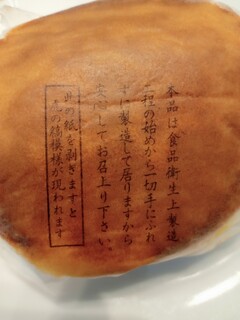 本品は食品衛生上製造
工程の始めから一切手にふれ
ずに製造して居りますから
安心してお召上り下さい。
此の紙を剥ぎますと
の模様が現われます